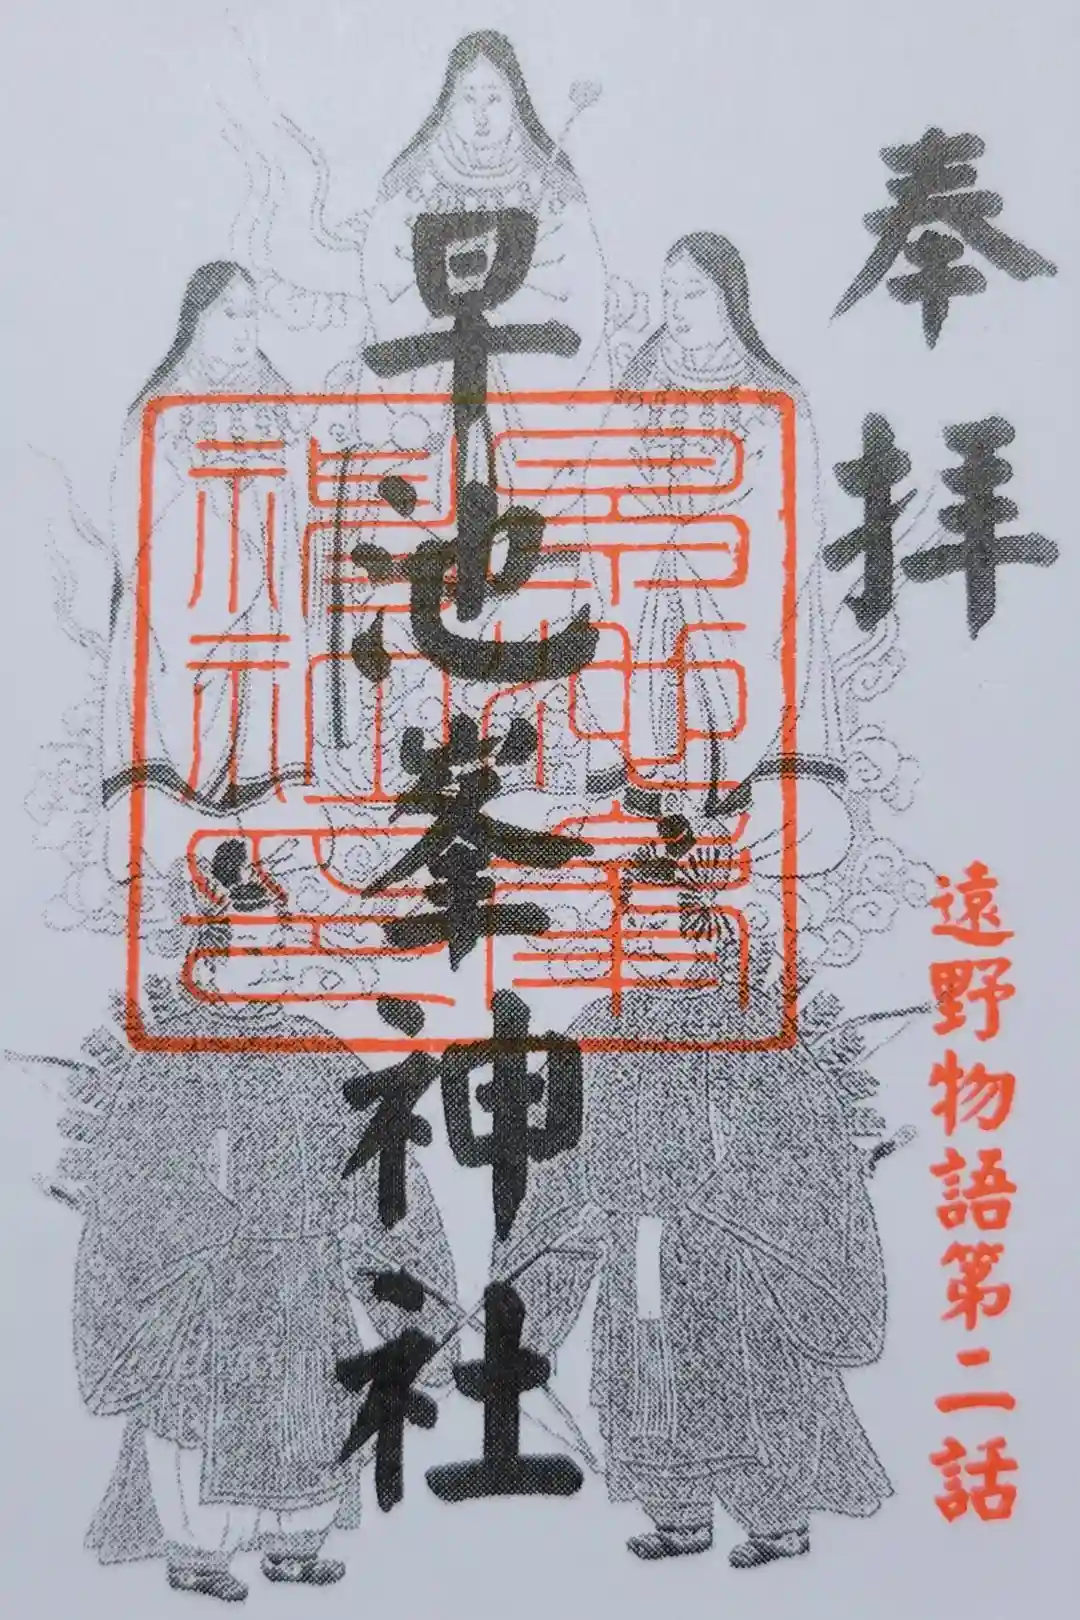 奉拝
早池峯神社
遠野物語第二話
早池峯
神社之印